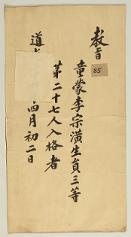 教旨
85
童蒙李宗潢生員三等
第二十七人入格者
道光
四月初二日